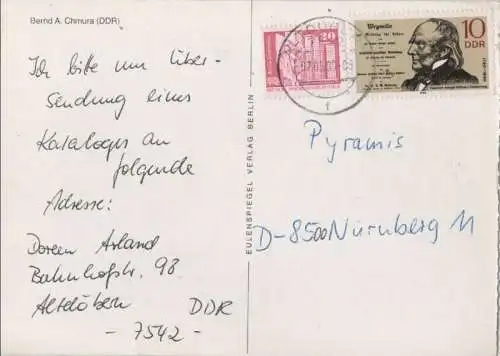 Bernd A. Chmura (DDR)
Ich bitte um Über-
sendung eines
Kataloges an
folgende
Adresse:
Doreen Arland
Bahnhofstr. 93
Altdöbern DDR
- 7542 -
EULENSPIEGEL VERLAG BERLIN
20
Wegweiser
10
DDR
Pyramis
D-8500 Nürnberg 11